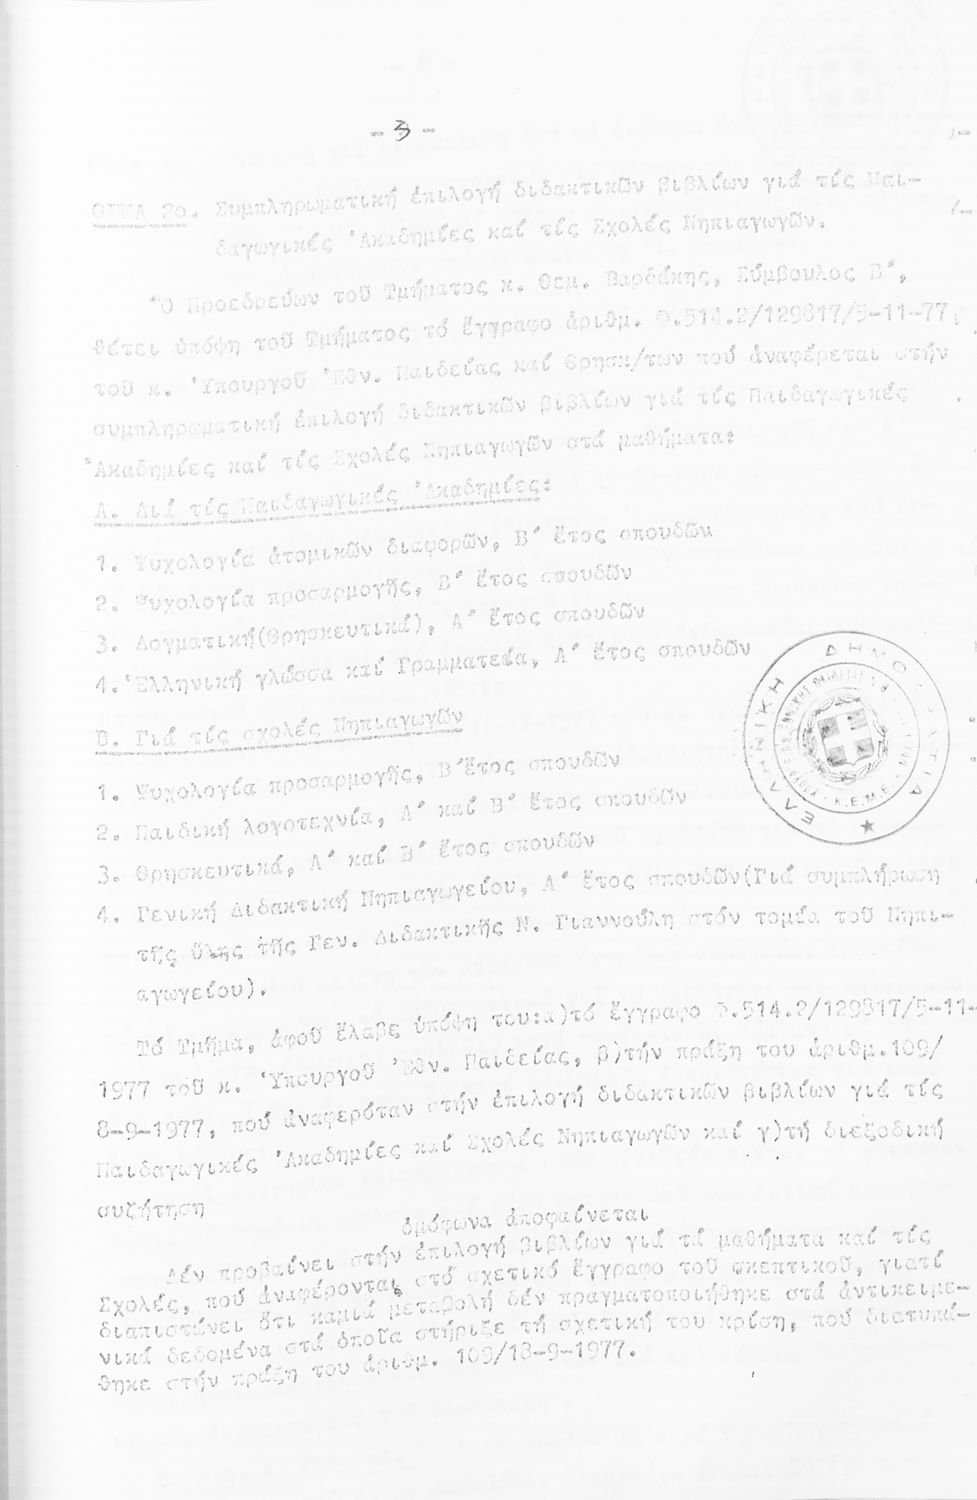 - 3 -
ΘΕΜΑ 2ο. Συμπληρωματική ἐπιλογή διδακτικῶν βιβλίων γιά τίς Παι-
δαγωγικές Ἀκαδημίες καί τίς Σχολές Νηπιαγωγῶν.
Ὁ Προεδρεύων τοῦ Τμήματος κ. Θεμ. Βαρδάκης, Σύμβουλος Β΄,
θέτει ὑπόψη τοῦ Τμήματος τό ἔγγραφο ἀριθμ. Φ.514.2/129817/5-11-77
τοῦ κ. Ὑπουργοῦ Ἐθν. Παιδείας καί Θρησκ/των πού ἀναφέρεται στήν
συμπληρωματική ἐπιλογή διδακτικῶν βιβλίων γιά τίς Παιδαγωγικές
Ἀκαδημίες καί τίς Σχολές Νηπιαγωγῶν στά μαθήματα:
Α. Διά τίς Παιδαγωγικές Ἀκαδημίες:
1. Ψυχολογία ἀτομικῶν διαφορῶν, Β΄ ἔτος σπουδῶν
2. Ψυχολογία προσαρμογῆς, Β΄ ἔτος σπουδῶν
3. Δογματική(Θρησκευτικά), Α΄ ἔτος σπουδῶν
4. Ἑλληνική γλώσσα καί Γραμματεία, Α΄ ἔτος σπουδῶν
Β. Γιά τίς σχολές Νηπιαγωγῶν
1. Ψυχολογία προσαρμογῆς, Β΄ἔτος σπουδῶν
2. Παιδική λογοτεχνία, Α΄ καί Β΄ ἔτος σπουδῶν
3. Θρησκευτικά, Α΄ καί Β΄ ἔτος σπουδῶν
4. Γενική Διδακτική Νηπιαγωγείου, Α΄ ἔτος σπουδῶν(Γιά συμπλήρωση
τῆς ὕλης τῆς Γεν. Διδακτικῆς Ν. Γιαννούλη στόν τομέα τοῦ Νηπι-
αγωγείου).
Τό Τμῆμα, ἀφοῦ ἔλαβε ὑπόψη του:α)τό ἔγγραφο Φ.514.2/129817/5-11-
1977 τοῦ κ. Ὑπουργοῦ Ἐθν. Παιδείας, β)τήν πράξη του ἀριθμ.109/
8-9-1977, πού ἀναφερόταν στήν ἐπιλογή διδακτικῶν βιβλίων γιά τίς
Παιδαγωγικές Ἀκαδημίες καί Σχολές Νηπιαγωγῶν καί γ)τή διεξοδική
συζήτηση
ὁμόφωνα ἀποφαίνεται
Δέν προβαίνει στήν ἐπιλογή βιβλίων γιά τά μαθήματα καί τίς
Σχολές, πού ἀναφέρονται στό σχετικό ἔγγραφο τοῦ σκεπτικοῦ, γιατί
διαπιστώνει ὅτι καμιά μεταβολή δέν πραγματοποιήθηκε στά ἀντικειμε-
νικά δεδομένα στά ὁποῖα στήριξε τή σχετική του κρίση, πού διατυπώ-
θηκε στήν πράξη του ἀριθμ. 109/13-9-1977.
ΕΛΛΗΝΙΚΗ ΔΗΜΟΚΡΑΤΙΑ
Κ.Ε.Μ.Ε.